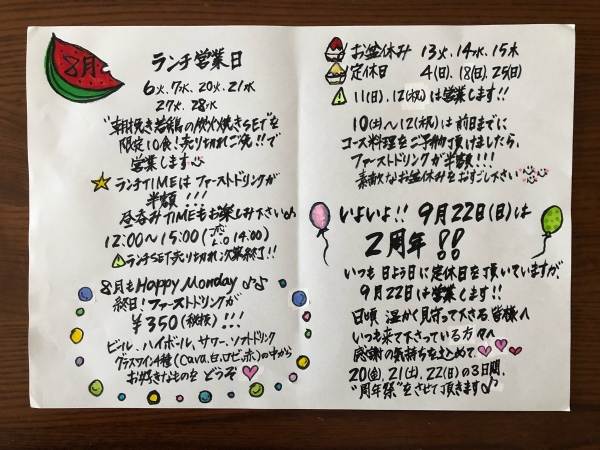 8月
ランチ営業日
6火.7水.20火.21水
27火.28水
"朝挽き若鶏の炭火焼きSET"を
限定10食!売り切れご免!!で
営業します
ランチTIMEは ファーストドリンクが
半額!!!
昼呑みTIMEもお楽しみ下さい♪
12:00〜15:00(フードL.O 14:00)
ランチSET売り切れ次第終了!!
8月もHappy Monday♪♪
終日!ファーストドリンクが
¥350(税抜)!!!
ビール、ハイボール、サワー、ソフトドリンク
グラスワイン4種(Cava.白.ロゼ.赤)の中から
お好きなものを どうぞ
お盆休み 13火.14水.15木
定休日 4(日).18(日).25(日)
11(日).12(祝)は営業します!!
10(土)〜12(祝)は前日までに
コース料理をご予約頂けましたら、
ファーストドリンクが半額!!!
素敵なお盆休みをおすごし下さい
いよいよ!! 9月22日(日)は
2周年!!
いつも 日よう日に定休日を頂いていますが、
9月22日は営業します!!
日頃 温かく見守って下さる皆様へ
いつも来て下さっている方々へ
感謝の気持ちを込めて
20(金).21(土).22(日)の3日間、
"周年祭"をさせて頂きます♪